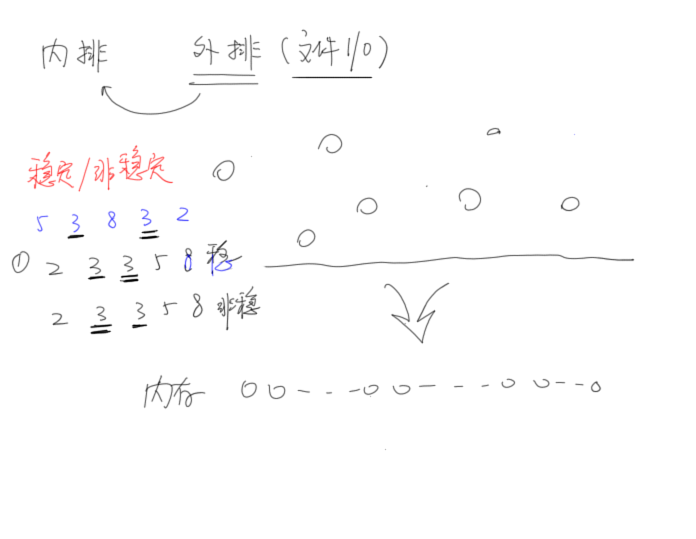 内排 外排(文件I/O)
稳定/非稳定
5 3 8 3 2
① 2 3 3 5 8 稳
2 3 3 5 8 非稳
内存 00---00---0 0--0